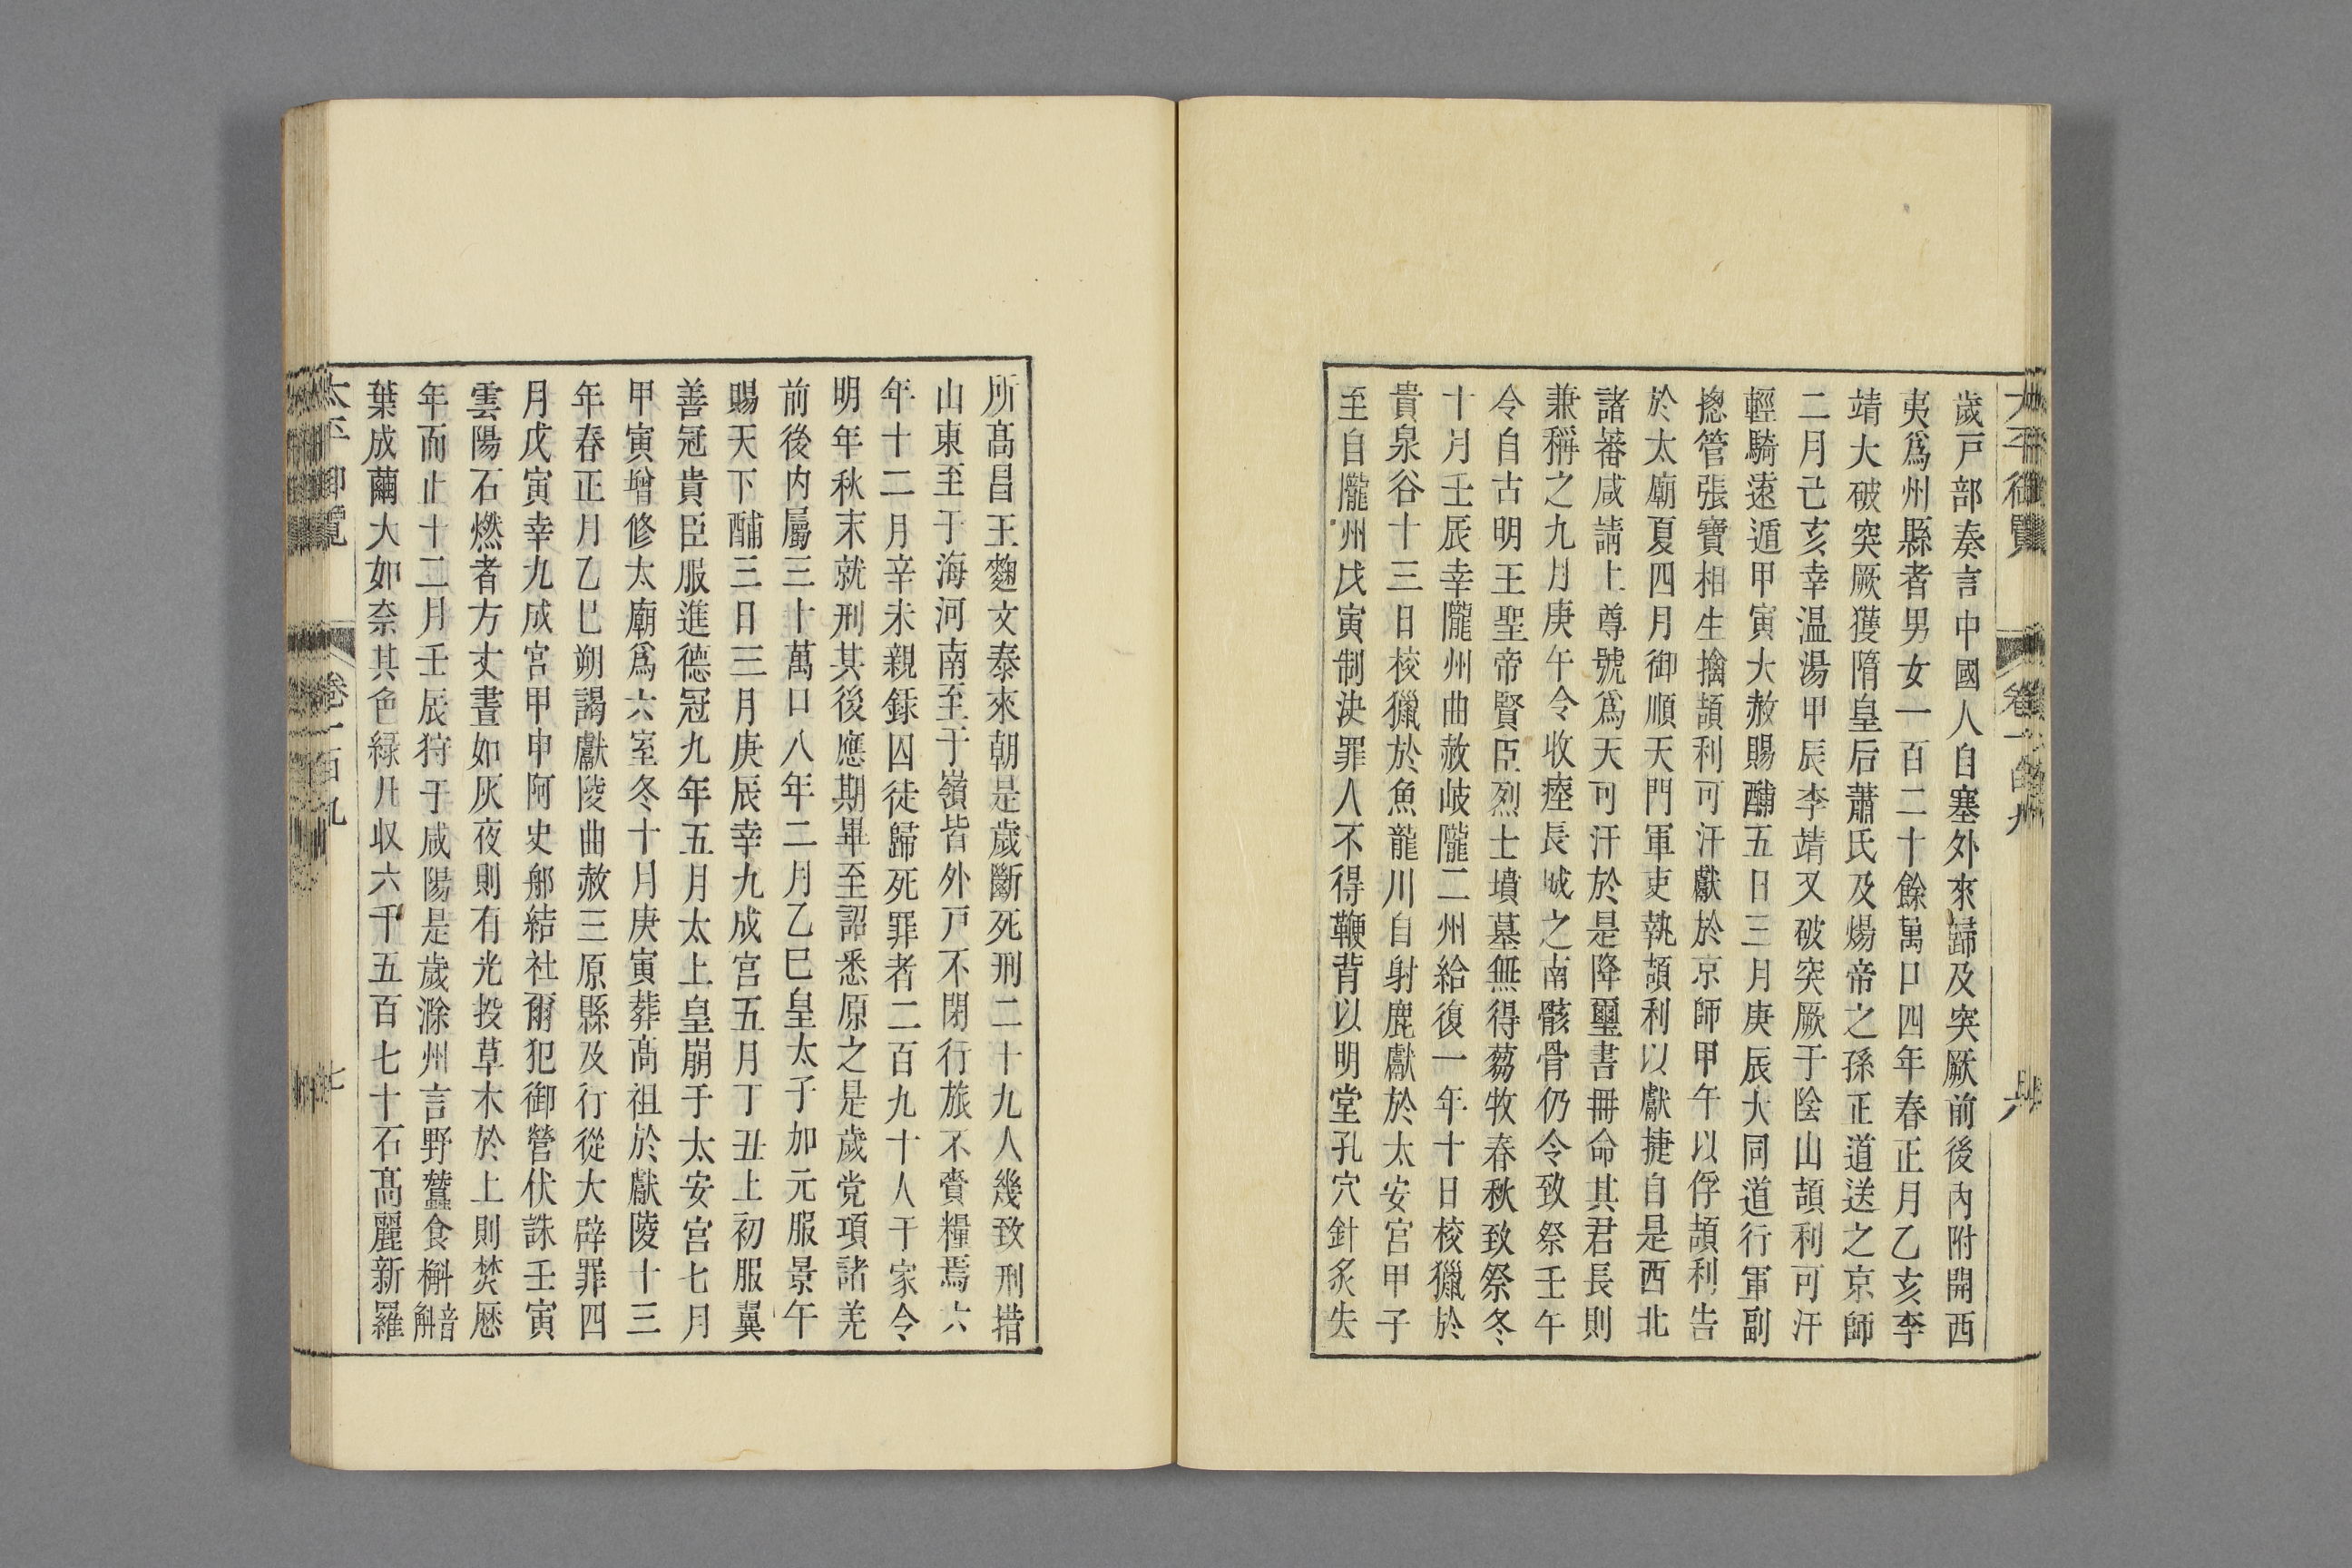 歲戸部奏言中國人自塞外來歸及突厥前後內附開西
夷爲州縣者男女一百二十餘萬口四年春正月乙亥李
靖大破突厥獲隋皇后蕭氏及煬帝之孫正道送之京師
二月己亥幸温湯甲辰李靖又破突厥于陰山頡利可汗
輕騎遠遁甲寅大赦賜酺五日三月庚辰大同道行軍副
摠管張寶相生擒頡利可汗獻於京師甲午以俘頡利告
於太廟夏四月御順天門軍吏執頡利以獻捷自是西北
諸蕃咸請上尊號爲天可汗於是降璽書冊命其君長則
兼稱之九月庚午令收瘞長城之南骸骨仍令致祭壬午
令自古明王聖帝賢臣烈士墳墓無得蒭牧春秋致祭冬
十月壬辰幸隴州曲赦岐隴二州給復一年十日校獵於
貴泉谷十三日校獵於魚龍川自射鹿獻於太安宮甲子
至自隴州戊寅制決罪人不得鞭背以明堂孔穴針炙失
所髙昌王麴文泰來朝是歲斷死刑二十九人幾致刑措
山東至于海河南至于嶺皆外戸不閉行旅不賫糧焉六
年十二月辛未親錄囚徒歸死罪者二百九十人于家令
明年秋末就刑其後應期畢至詔悉原之是歲党項諸羌
前後内屬三十萬口八年二月乙巳皇太子加元服景午
賜天下酺三日三月庚辰幸九成宮五月丁丑上初服翼
善冠貴臣服進德冠九年五月太上皇崩于太安宮七月
甲寅增修太廟爲六室冬十月庚寅葬髙祖於獻陵十三
年春正月乙巳朔謁獻陵曲赦三原縣及行從大辟罪四
月戊寅幸九成宮甲申阿史那結社爾犯御營伏誅壬寅
雲陽石燃者方丈晝如灰夜則有光投草木於上則焚歷
年而止十二月壬辰狩于咸陽是歲滁州言野蠶食槲音斛
葉成繭大如柰其色緑凡収六千五百七十石髙麗新羅
太平御覽 卷一百九 七